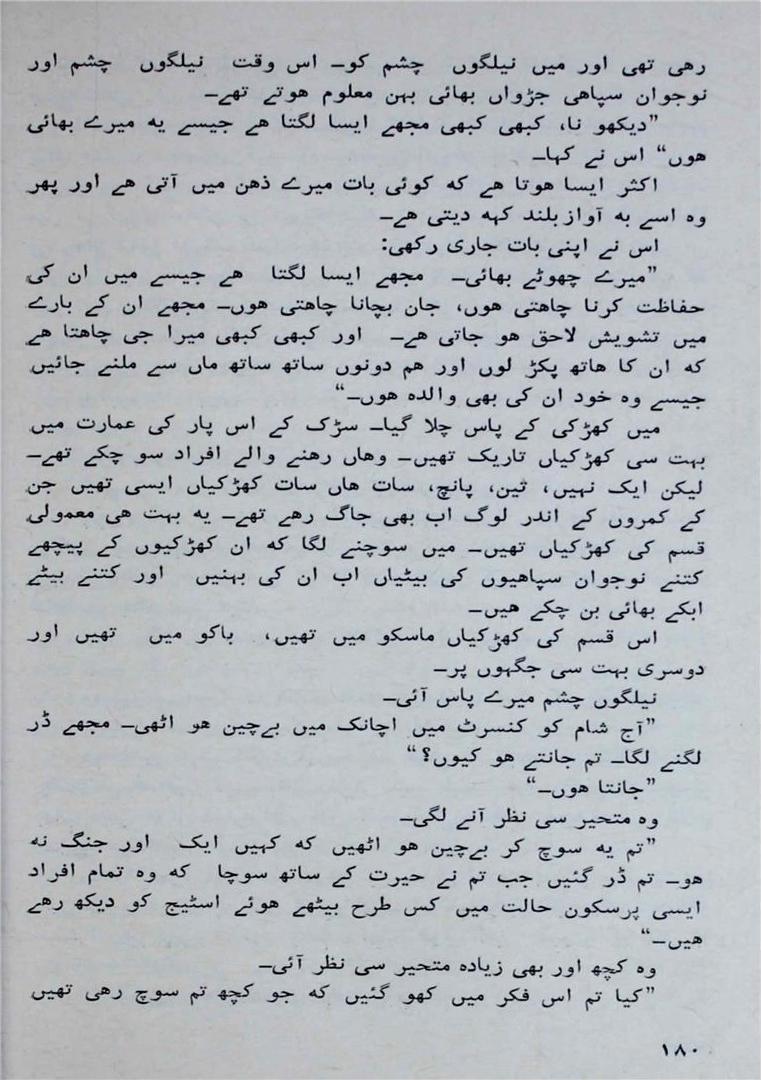 رھی تھی اور میں نیلگوں چشم کو۔ اس وقت نیلگوں چشم اور
نوجوان سپاھی جڑواں بھائی بہن معلوم ھوتے تھے۔
”دیکھو نا، کبھی کبھی مجھے ایسا لگتا ھے جیسے یہ میرے بھائی
ھوں“ اس نے کہا۔
اکثر ایسا ھوتا ھے کہ کوئی بات میرے ذھن میں آتی ھے اور پھر
وہ اسے بہ آواز بلند کہہ دیتی ھے۔
اس نے اپنی بات جاری رکھی:
”میرے چھوٹے بھائی۔ مجھے ایسا لگتا ھے جیسے میں ان کی
حفاظت کرنا چاھتی ھوں، جان بچانا چاھتی ھوں۔ مجھے ان کے بارے
میں تشویش لاحق ھو جاتی ھے۔ اور کبھی کبھی میرا جی چاھتا ھے
کہ ان کا ھاتھ پکڑ لوں اور ھم دونوں ساتھ ساتھ ماں سے ملنے جائیں
جیسے وہ خود ان کی بھی والدہ ھوں۔“
میں کھڑکی کے پاس چلا گیا۔ سڑک کے اس پار کی عمارت میں
بہت سی کھڑکیاں تاریک تھیں۔ وھاں رھنے والے افراد سو چکے تھے۔
لیکن ایک نہیں، تین، پانچ، سات ھاں سات کھڑکیاں ایسی تھیں جن
کے کمروں کے اندر لوگ اب بھی جاگ رھے تھے۔ یہ بہت ھی معمولی
قسم کی کھڑکیاں تھیں۔ میں سوچنے لگا کہ ان کھڑکیوں کے پیچھے
کتنے نوجوان سپاھیوں کی بیٹیاں اب ان کی بہنیں اور کتنے بیٹے
ابکے بھائی بن چکے ھیں۔
اس قسم کی کھڑکیاں ماسکو میں تھیں، باکو میں تھیں اور
دوسری بہت سی جگہوں پر۔
نیلگوں چشم میرے پاس آئی۔
”آج شام کو کنسرٹ میں اچانک میں بےچین ھو اٹھی۔ مجھے ڈر
لگنے لگا۔ تم جانتے ھو کیوں؟“
”جانتا ھوں۔“
وہ متحیر سی نظر آنے لگی۔
”تم یہ سوچ کر بےچین ھو اٹھیں کہ کہیں ایک اور جنگ نہ
ھو۔ تم ڈر گئیں جب تم نے حیرت کے ساتھ سوچا کہ وہ تمام افراد
ایسی پرسکون حالت میں کس طرح بیٹھے ھوئے اسٹیج کو دیکھ رھے
ھیں۔“
وہ کچھ اور بھی زیادہ متحیر سی نظر آئی۔
”کیا تم اس فکر میں کھو گئیں کہ جو کچھ تم سوچ رھی تھیں
۱۸۰